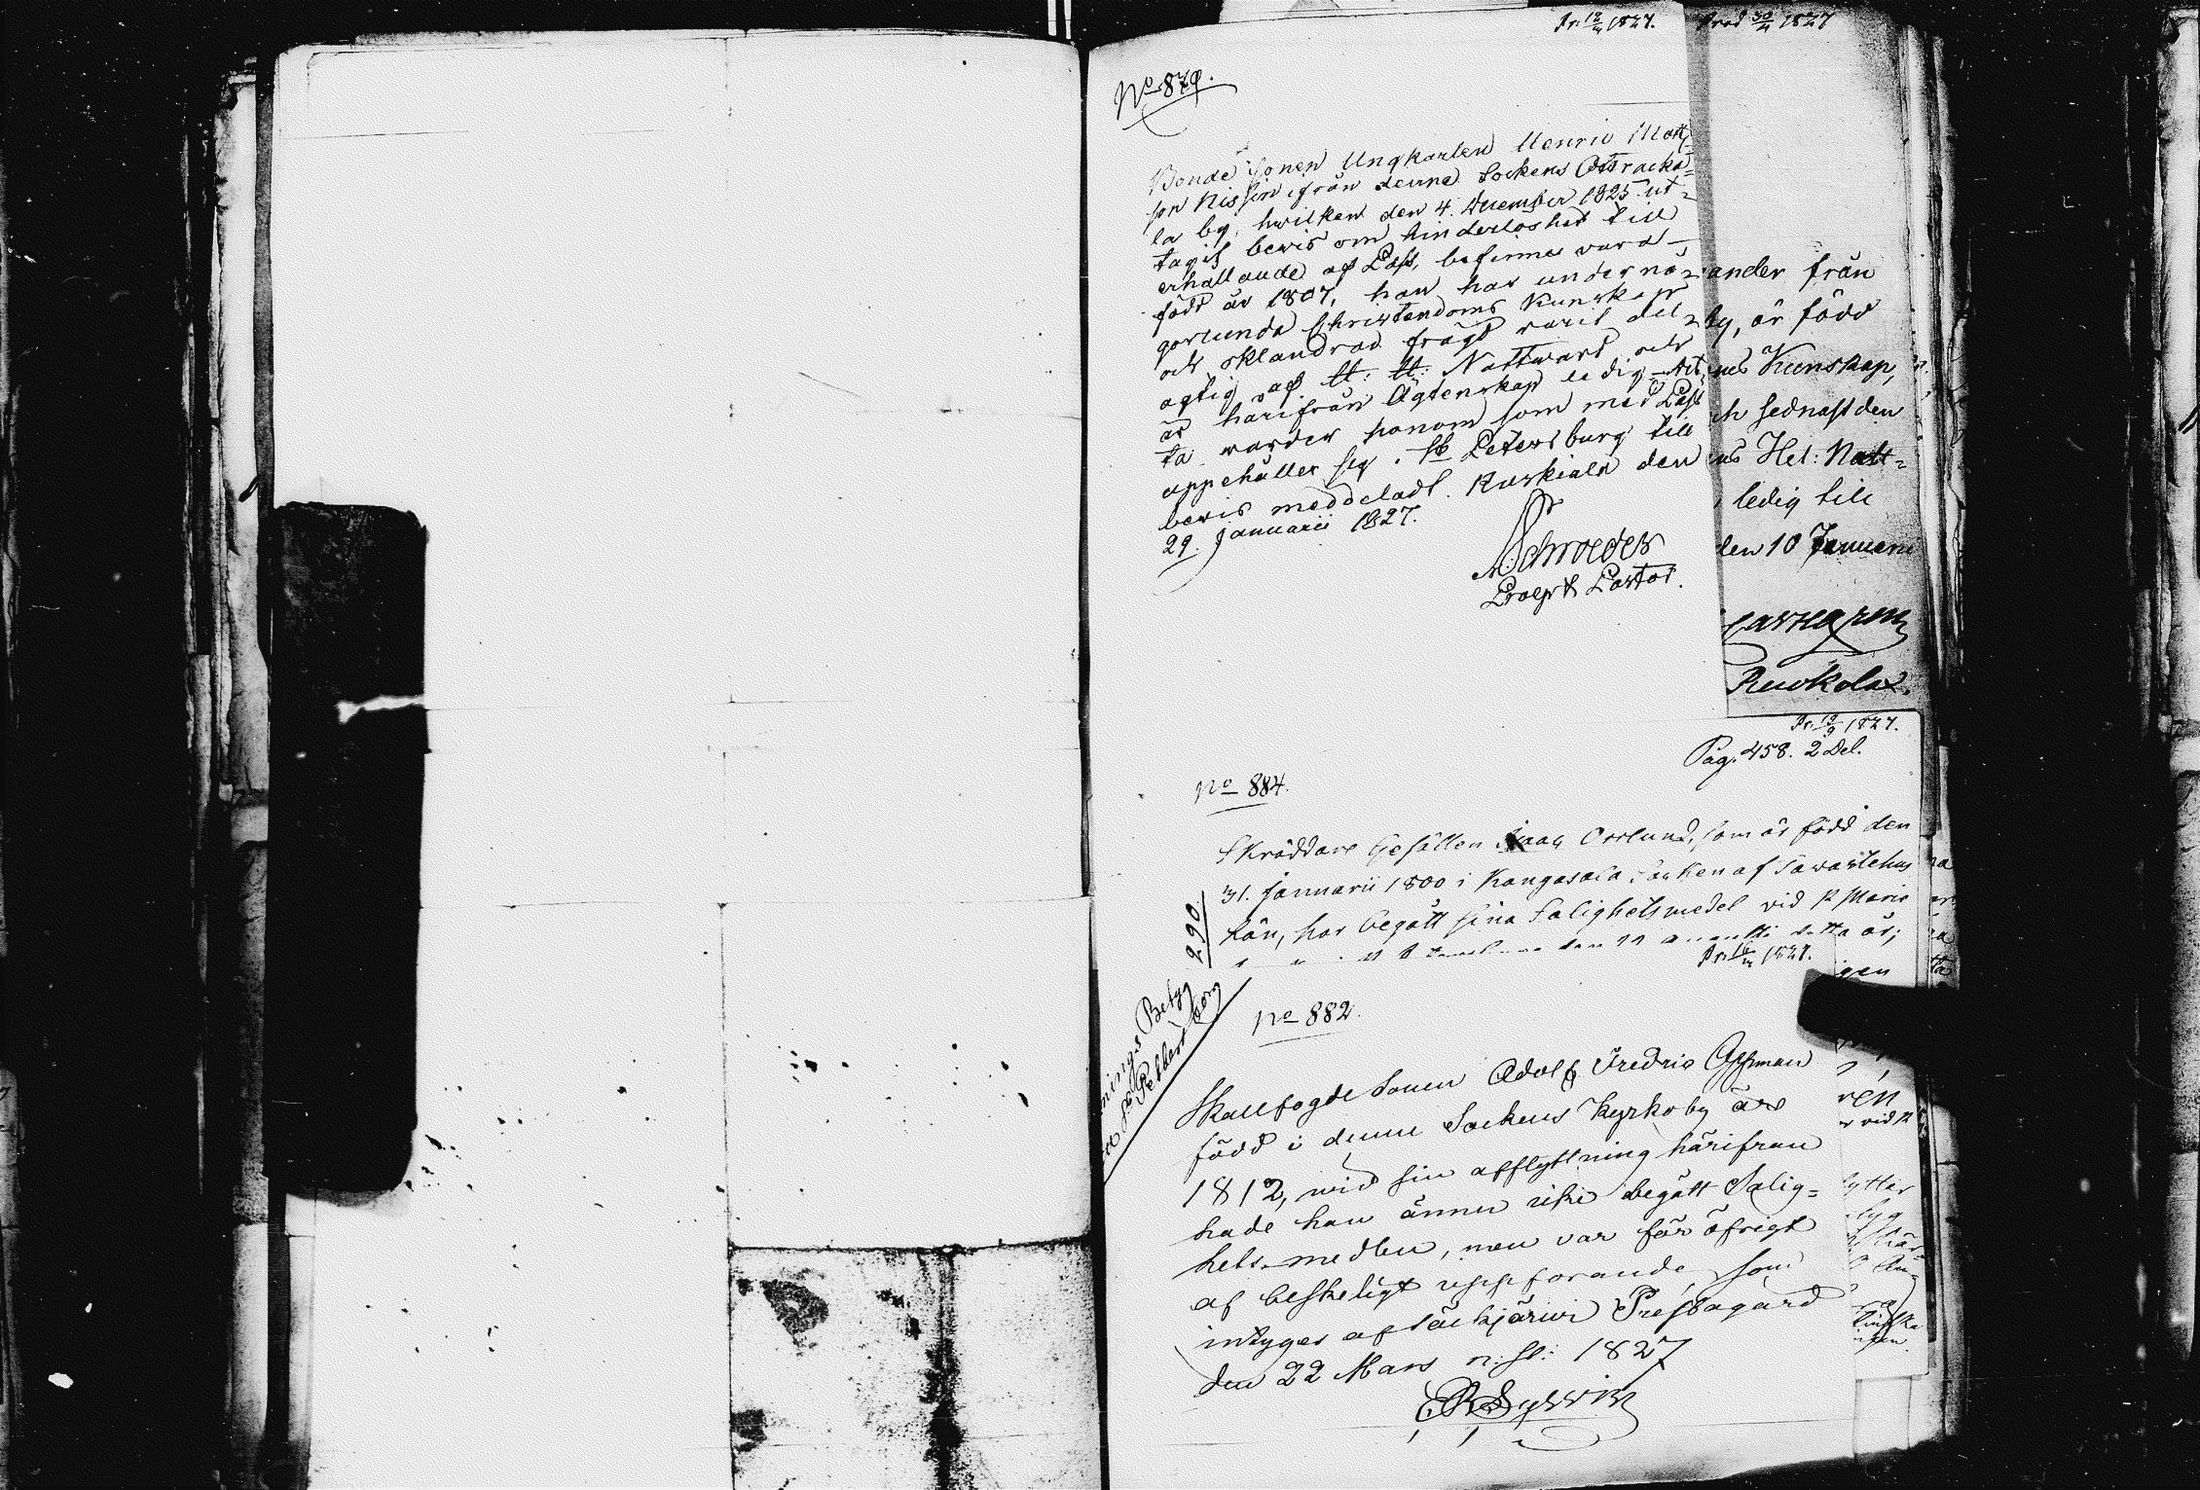 Pr. 12/4 1827.
Prod 30/4 1827
No 879.
Bonde Sonen Ungkarlen Henric Matts
son Nissin ifrån denna Sockens Otsracka=
la by, hwilken den 4. December 1825 ut=
tagit bewis om hinderlöshet till
erhållande af Pass, befinnes vara
född år 1807, han har under nö=
gorlunda Christendoms Kunskap
och oklandrad frägd varit del=
agtig af H: H: Nattward och
är härifrån Ägtenskap ledig Det=
ta warder honom som med Pass
uppehåller sig i St Petersburg till
bewis meddeladt. Ruskiala den
29. Januarii 1827.
A. Schroeder
Probst & Pastor.
ander från
by, är född
Kunskap,
ch sednast den
Hel: Natt=
ledig till
den 10 Januarii
Ruokolax.
Pr. 19/9 1827.
Pag. 458. 2 Del.
No 884.
Skräddare Gesällen Isaac Osslund, som är född den
31. Januarii 1800 i Kangasala Socken af Tawastehus
län, har begått sina Salighetsmedel vid St Marie
den 11 Augusti detta år;
290
Pr. 16/4 1827.
nings Betyg
för Petters borg
No 882
Skallfogde Sonen Adolf Fredric Assman
född i denne Sockens Kyrkoby åre
1812, wid sin afflyttning härifran
hade han ännu icke begått Salig=
hets-medlen, men var för öfrigt
af beskeligt uppforande, som
intyges af Jäskjärwi Prestagard
den 22 Mars n: st: 1827
gen
ren
vid
lytter
tyg